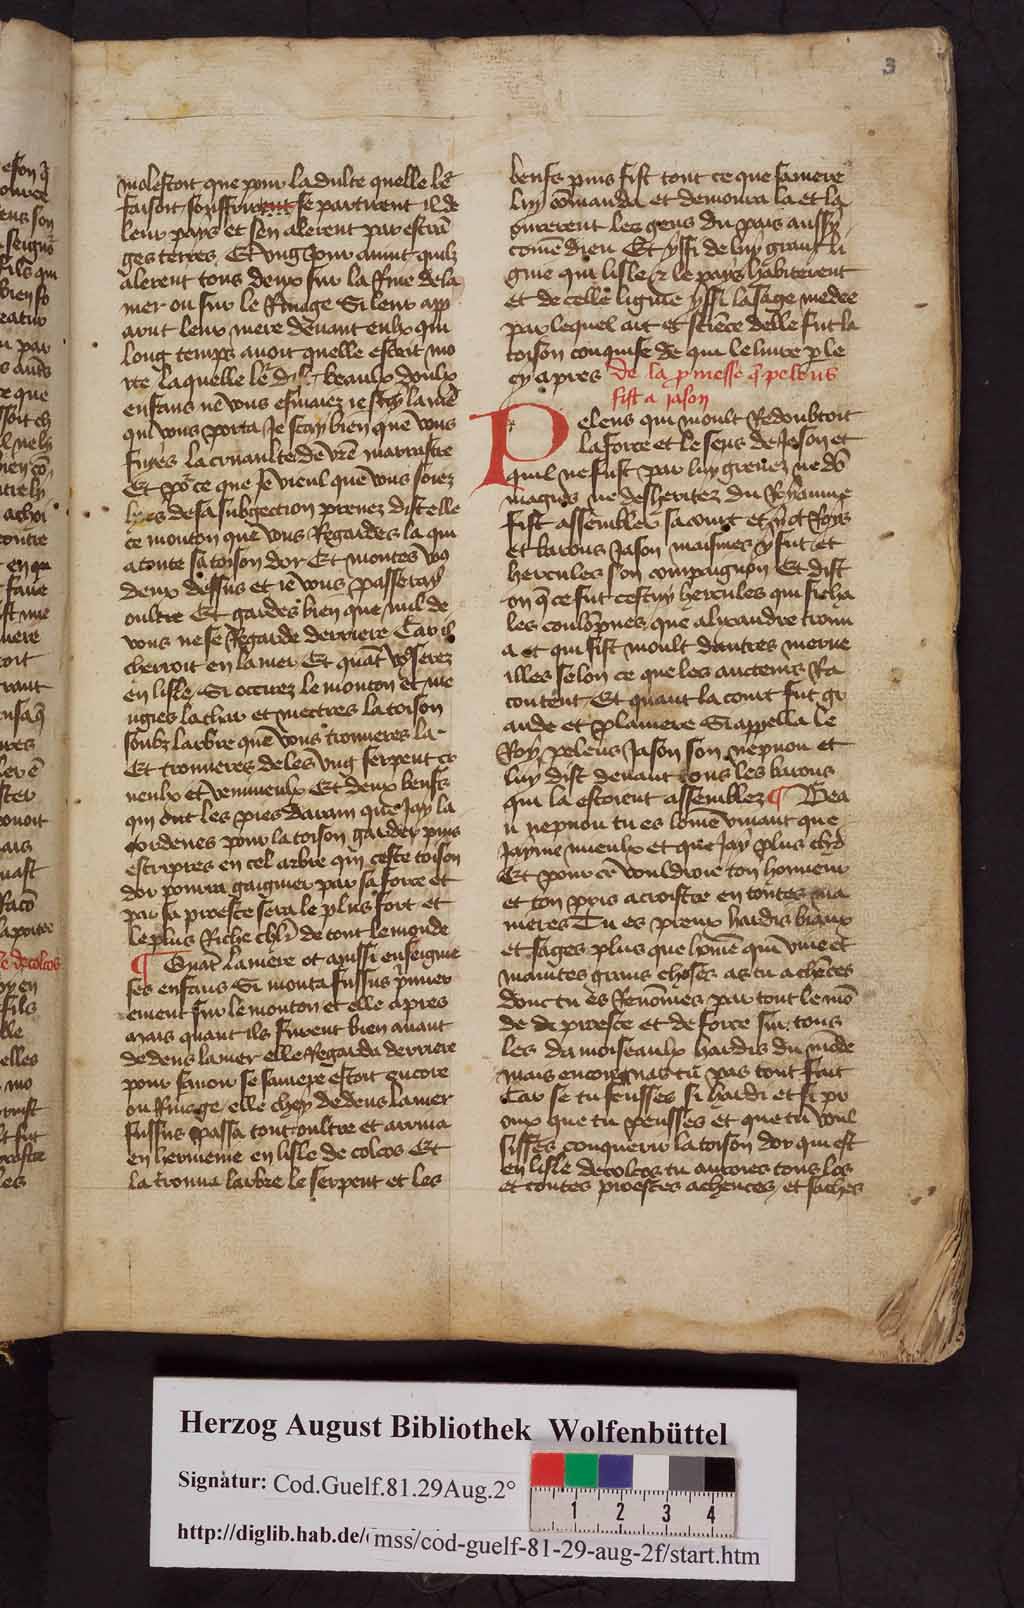 3
molestoit que pour la dulte quelle le᷑
faisoit souffrir se partirent il de
leur pays et sen alerent par estra᷑
ges terres. Et vng Jour auint quilz
alerent tous deux sur la Riue de la
mer ou sur le Riuage Si leur app
arut leur mere deuant eulx qui
long temps auoit quelle estoit mo
rte laquelle le᷑ dist beaulx doulx
enfans ne vous esmaiez ie suy la me᷑
qui vous porta Je scay bien que vous
fuyes la cruaulte de vr̄e marrastre
Et po᷑ ce que Je vieul que vous soiez
hors de sa subgection prenez dist elle
ce mouton que vous Regardes la qui
a toute sa toison dor Et montes vo᷑
deux dessus et ie vous passeray
oultre Et gardes bien que nul de
vous ne se Regarde derriere Car il
cherroit en la mer Et qua᷑t vo᷑ serez
en lisle Si occirez le mouton et me
ngies la char et mectres la toison
soubz larbre que vous trouueres la
Et trouueres deles vng serpent cr
ueulx et venimeulx Et deux beufs
qui ont les pies darain que Jay la
ordenes pour la toison garder puis
escripres en cel arbre qui ceste toison
dor pourra gaignier par sa force et
par sa proesce sera le plus fort et
le plus Riche chlr̄ de tout le monde
¶ Quāt la mere ot ainssi enseignie
ses enfans Si monta fussus p̄mier
ement sur le mouton et elle apres
mais quant ils furent bien auant
dedens la mer elle Regarda derriere
pour sauoir se sa mere estoit encore
ou Riuage elle chey dedens la mer
fussus passa tout oultre et arriua
en hermenie en lisle de colcos Et
la trouua larbre le serpent et les
beufs puis fist tout ce que sa mere
luy cōmanda et demoura la et la
ourerent les gens du pais aussy
come dieu Et yssi de luy grant li
gnie qui lisle & le pays habiterent
et de celle lignie yssi la sage medee
par lequel art et sciēce delle fut la
toison conquise de qui le liure ꝑle
cy apres de la ꝓmesse q̄ peleus
fist a jason
Peleus qui moult Redoubtoit
la force et le sens de Jason et
quil ne fust par luy greuez ne do᷑
magies ne desheritez du Royaume
fist assembler sa court et y ot Roys
et barons Jason maismes y fut et
hercules son compaignon Et dist
on q̄ ce fut cestuy hercules qui ficha
les coulōpnes que alixandre trouu
a et qui fist moult dautres merue
illes selon ce que les aucteurs Ra
contēt Et quant la court fut gr
ande et planiere Si appella le
Roy peleus Jason son nepuou et
luy dist deuant tous les barons
qui la estoient assemblez ¶ Bea
u nepuou tu es lome viuant que
Jayme mieulx et que Jay plus chr̄
Et pour ce vouldroie ton honneur
et ton pris acroistre en toutes ma
nieres Tu es preux hardis biaux
et sages plus que home qui viue et
maintes grans choses as tu acheuees
donc tu es Renōmes par tout le mō
de de proesce et de force sur tous
les damoiseaulx hardis du mōde
mais encore nas tu pas tout fait
Car se tu feusses si hardi et si pr
oux que tu peusses et que tu voul
sisses conquerir la toison dor qui est
en lisle de colcos tu auroies tous los
et toutes proesces acheuees et saches
Herzog August Bibliothek Wolfenbüttel
Signatur: Cod.Guelf.81.29Aug.2°
1 2 3 4
http://diglib.hab.de/mss/cod-guelf-81-29-aug-2f/start.htm